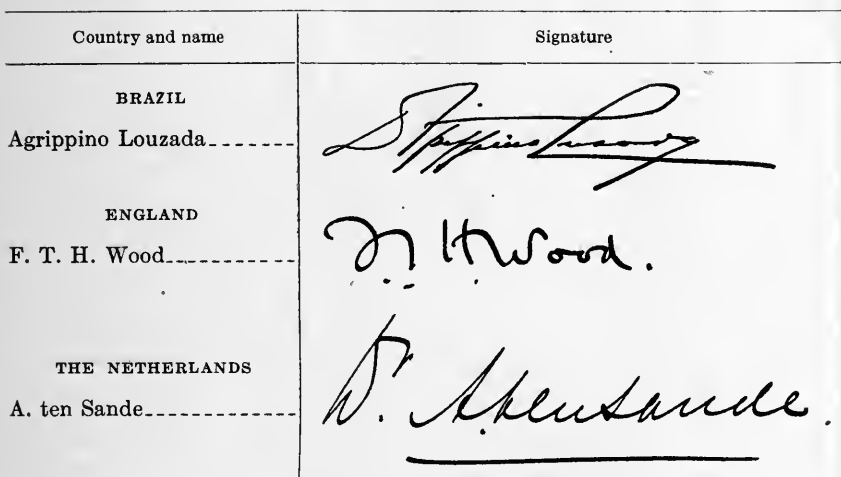 Country and name Signature
BRAZIL
Agrippino Louzada
ENGLAND
F. T. H. Wood H Wood.
THE NETHERLANDS
A. ten Sande Dr. A. ten Sande.